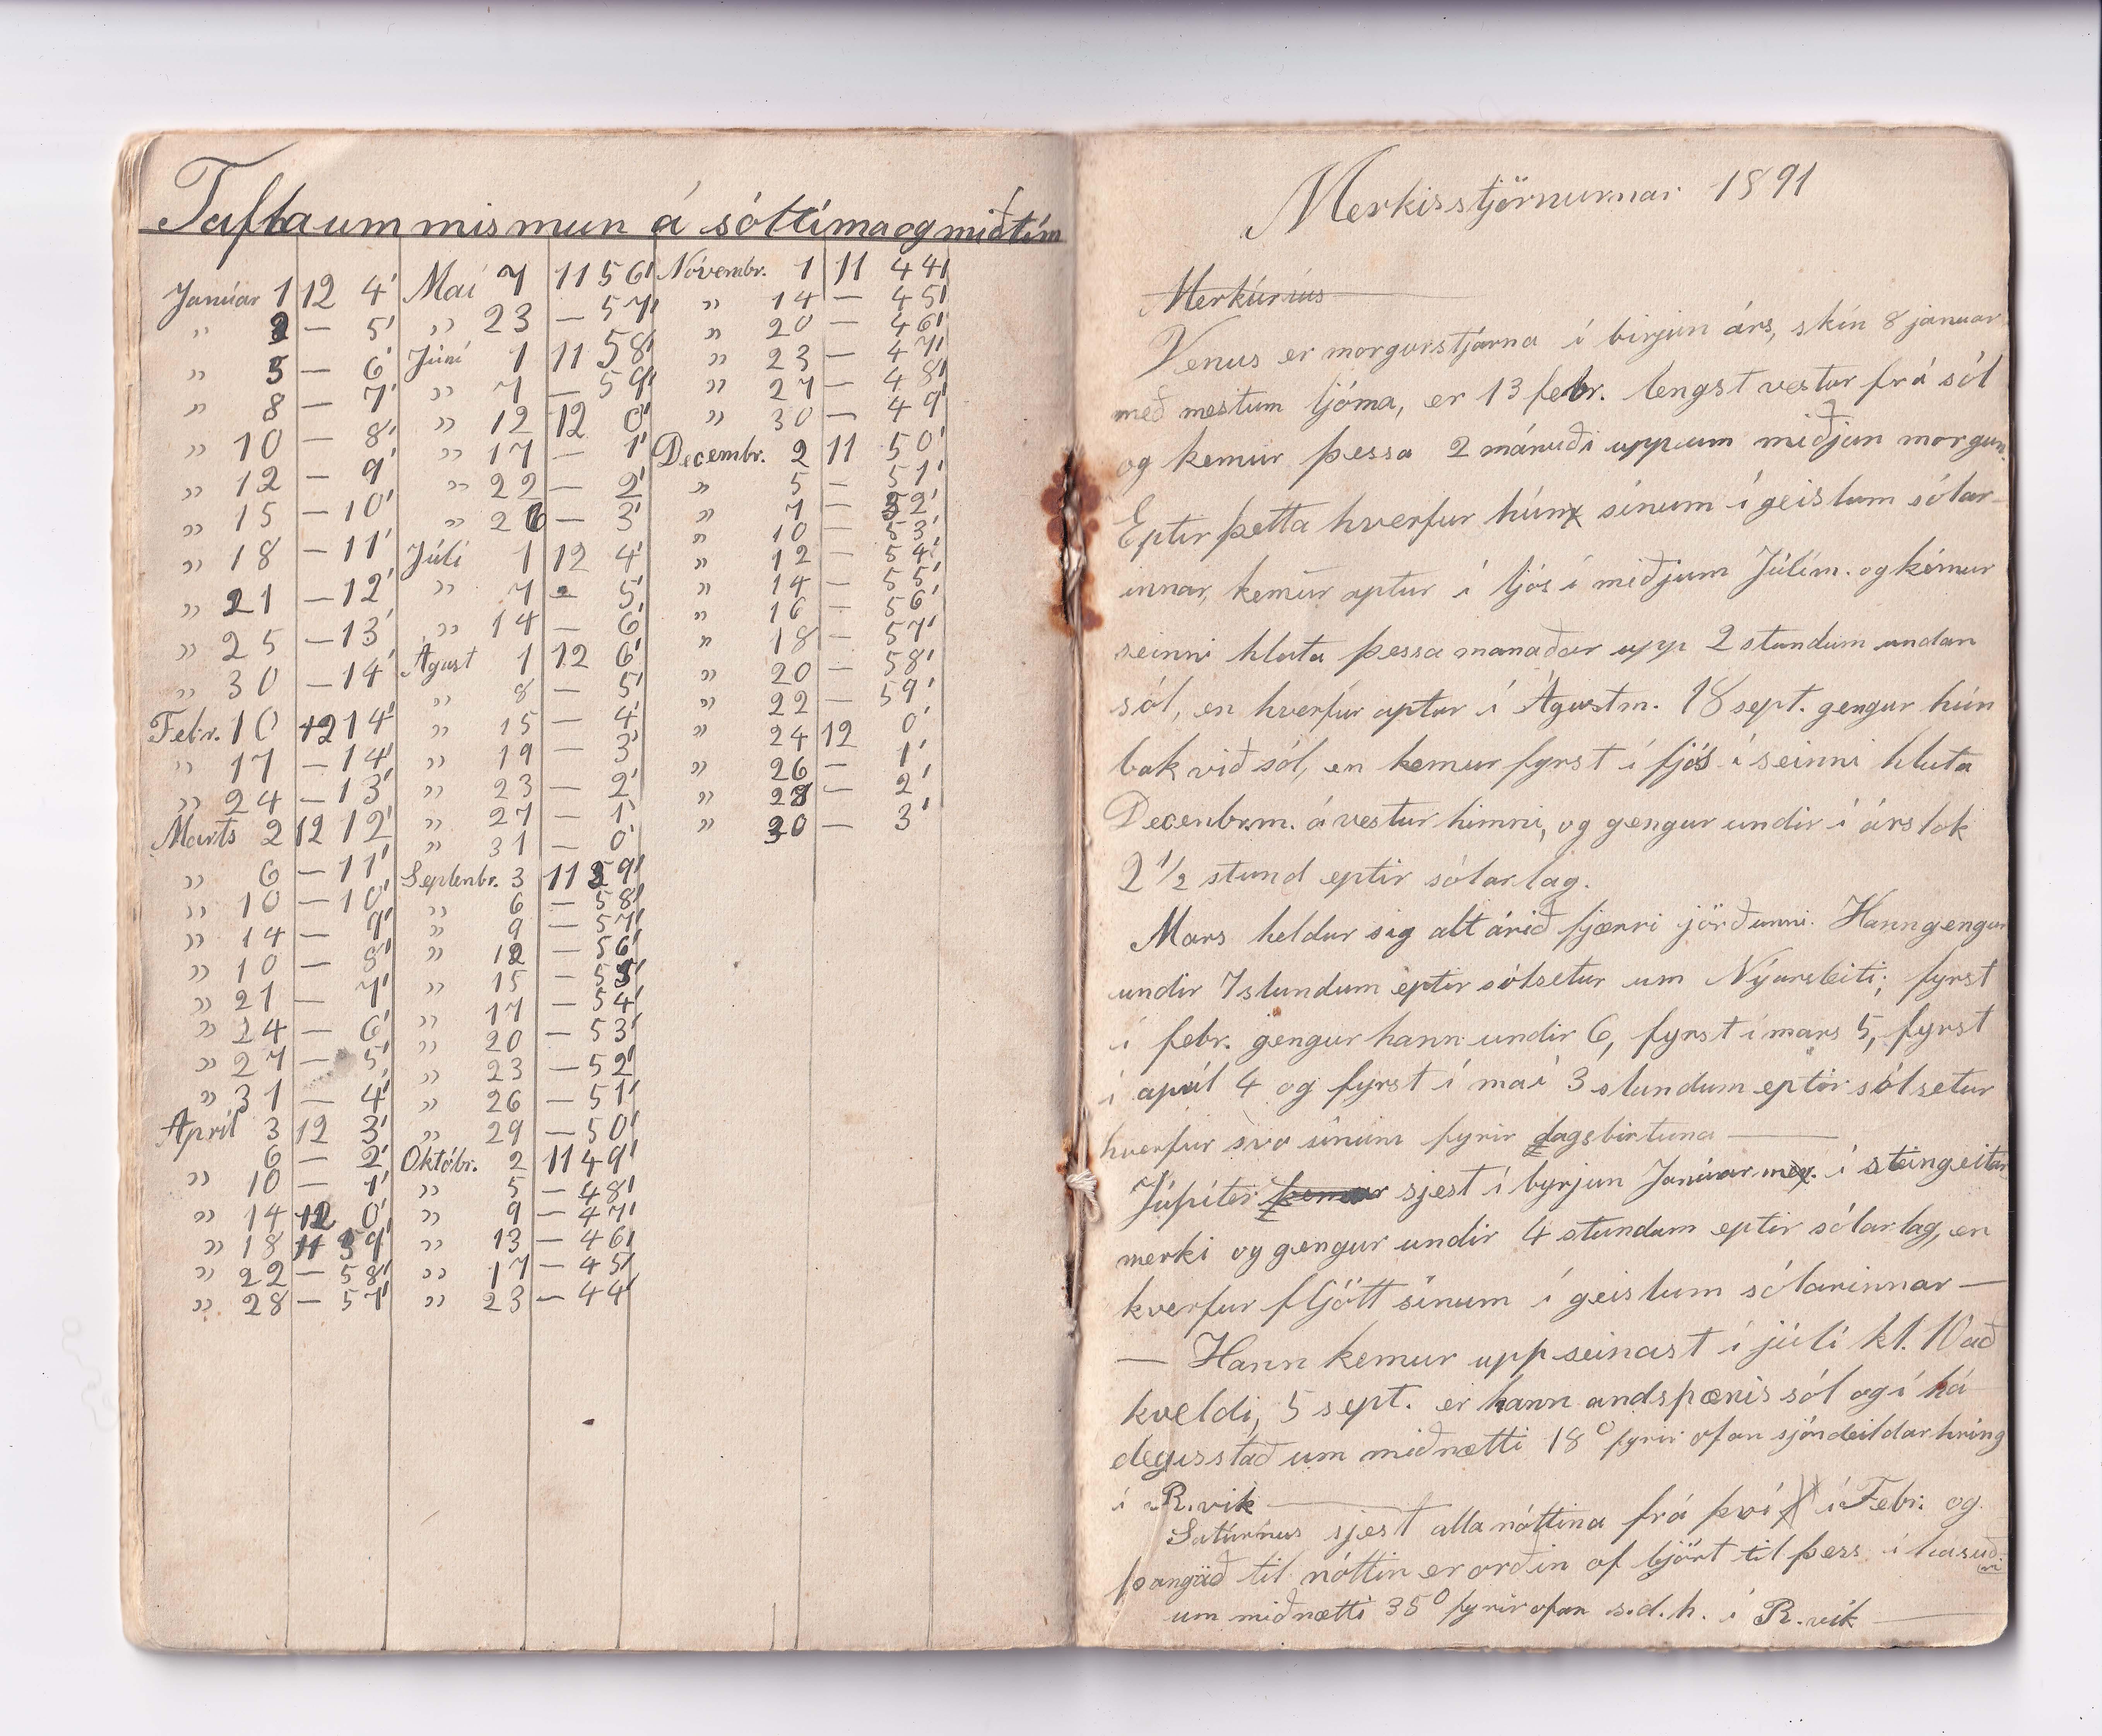 Tafla um mismun á sóltíma og miðtím
Januar 1 12 4'
" 2 — 5'
" 5 — 6'
" 8 — 7'
" 10 — 8'
" 12 — 9'
" 15 — 10'
" 18 — 11'
" 21 — 12'
" 25 — 13'
" 30 — 14'
Febr. 10 12 14'
" 17 — 14'
" 24 — 13'
Marts 2 12 12'
" 6 — 11'
" 10 — 10'
" 14 — 9'
" 10 — 8'
" 21 — 7'
" 24 — 6'
" 27 — 5'
" 31 — 4'
Apríl 3 12 3'
6 — 2'
" 10 — 1'
" 14 12 0'
" 18 11 59'
" 22 — 58'
" 28 — 57'
Mai 7 11 56'
" 23 — 57'
Júní 1 11 58'
" 7 — 59'
" 12 12 0'
" 17 — 1'
" 22 — 2'
" 26 — 3'
Júlí 1 12 4'
" 7 - 5'
" 14 — 6'
Ágúst 1 12 6'
" 8 — 5'
" 15 — 4'
" 19 — 3'
" 23 — 2'
" 27 — 1'
" 31 — 0'
Septenbr. 3 11 59'
" 6 — 58'
" 9 — 57'
" 12 — 56'
" 15 — 55'
" 17 — 54'
" 20 — 53'
" 23 — 52'
" 26 — 51'
" 29 — 50'
Októbr. 2 11 49'
" 5 — 48'
" 9 — 47'
" 13 — 46'
" 17 — 45'
" 23 — 44'
Nóvembr. 1 11 44'
" 14 — 45'
" 20 — 46'
" 23 — 47'
" 27 — 48'
" 30 — 49'
Decembr. 2 11 50'
" 5 — 51'
" 7 — 52'
" 10 — 53'
" 12 — 54'
" 14 — 55'
" 16 — 56'
" 18 — 57'
" 20 — 58'
" 22 — 59'
" 24 12 0'
" 26 — 1'
" 28 — 2'
" 30 — 3'
Merkisstjörnurnar 1891
Merkúríus
Venus er morgunstjarna í birjun árs, skín 8 januar
með mestum ljóma, er 13 febr. lengst vestur frá sól
og kemur þessa 2 mánuði upp um miðjan morgun.
Eptir þetta hverfur hún sínum í geislum sólar-
innar, kemur aptur í ljós í miðjum Júlím. og kemur
seinni hluta þessa manaðar upp 2 stundum undan
sól, en hverfur aptur í Ágústm. 18 sept. gengur hún
bak við sól, en kemur fyrst í ljós í seinni hluta
Decenbrm. á vestur himni, og gengur undir í árslok
2 1/2 stund eptir sólarlag.
Mars heldur sig alt árið fjærri jörðunni. Hann gengur
undir 7 stundum eptir sólsetur um Nýarsleiti; fyrst
í febr. gengur hann undir 6, fyrst í mars 5, fyrst
í apríl 4 og fyrst í maí 3 stundum eptir sólsetur
hverfur svo sínum fyrir dagsbirtuna —
Júpíter sjest í byrjun Janúar í steingeitar
merki og gengur undir 4 stundum eptir sólarlag, en
hverfur fljótt sínum í geislum sólarinnar —
— Hann kemur upp seinast í júlí kl. 10 að
kveldi, 5 sept. er hann andspænis sól og í há
degisstað um miðnætti 18° fyrir ofan sjóndeildarhring
í R.vik —
Satúrnus sjest alla nóttina frá því í Febr. og
þangað til nóttin er orðin of björt til þess í hásuðri
um miðnætti 35° fyrir ofan s.d.h. í R.vik —